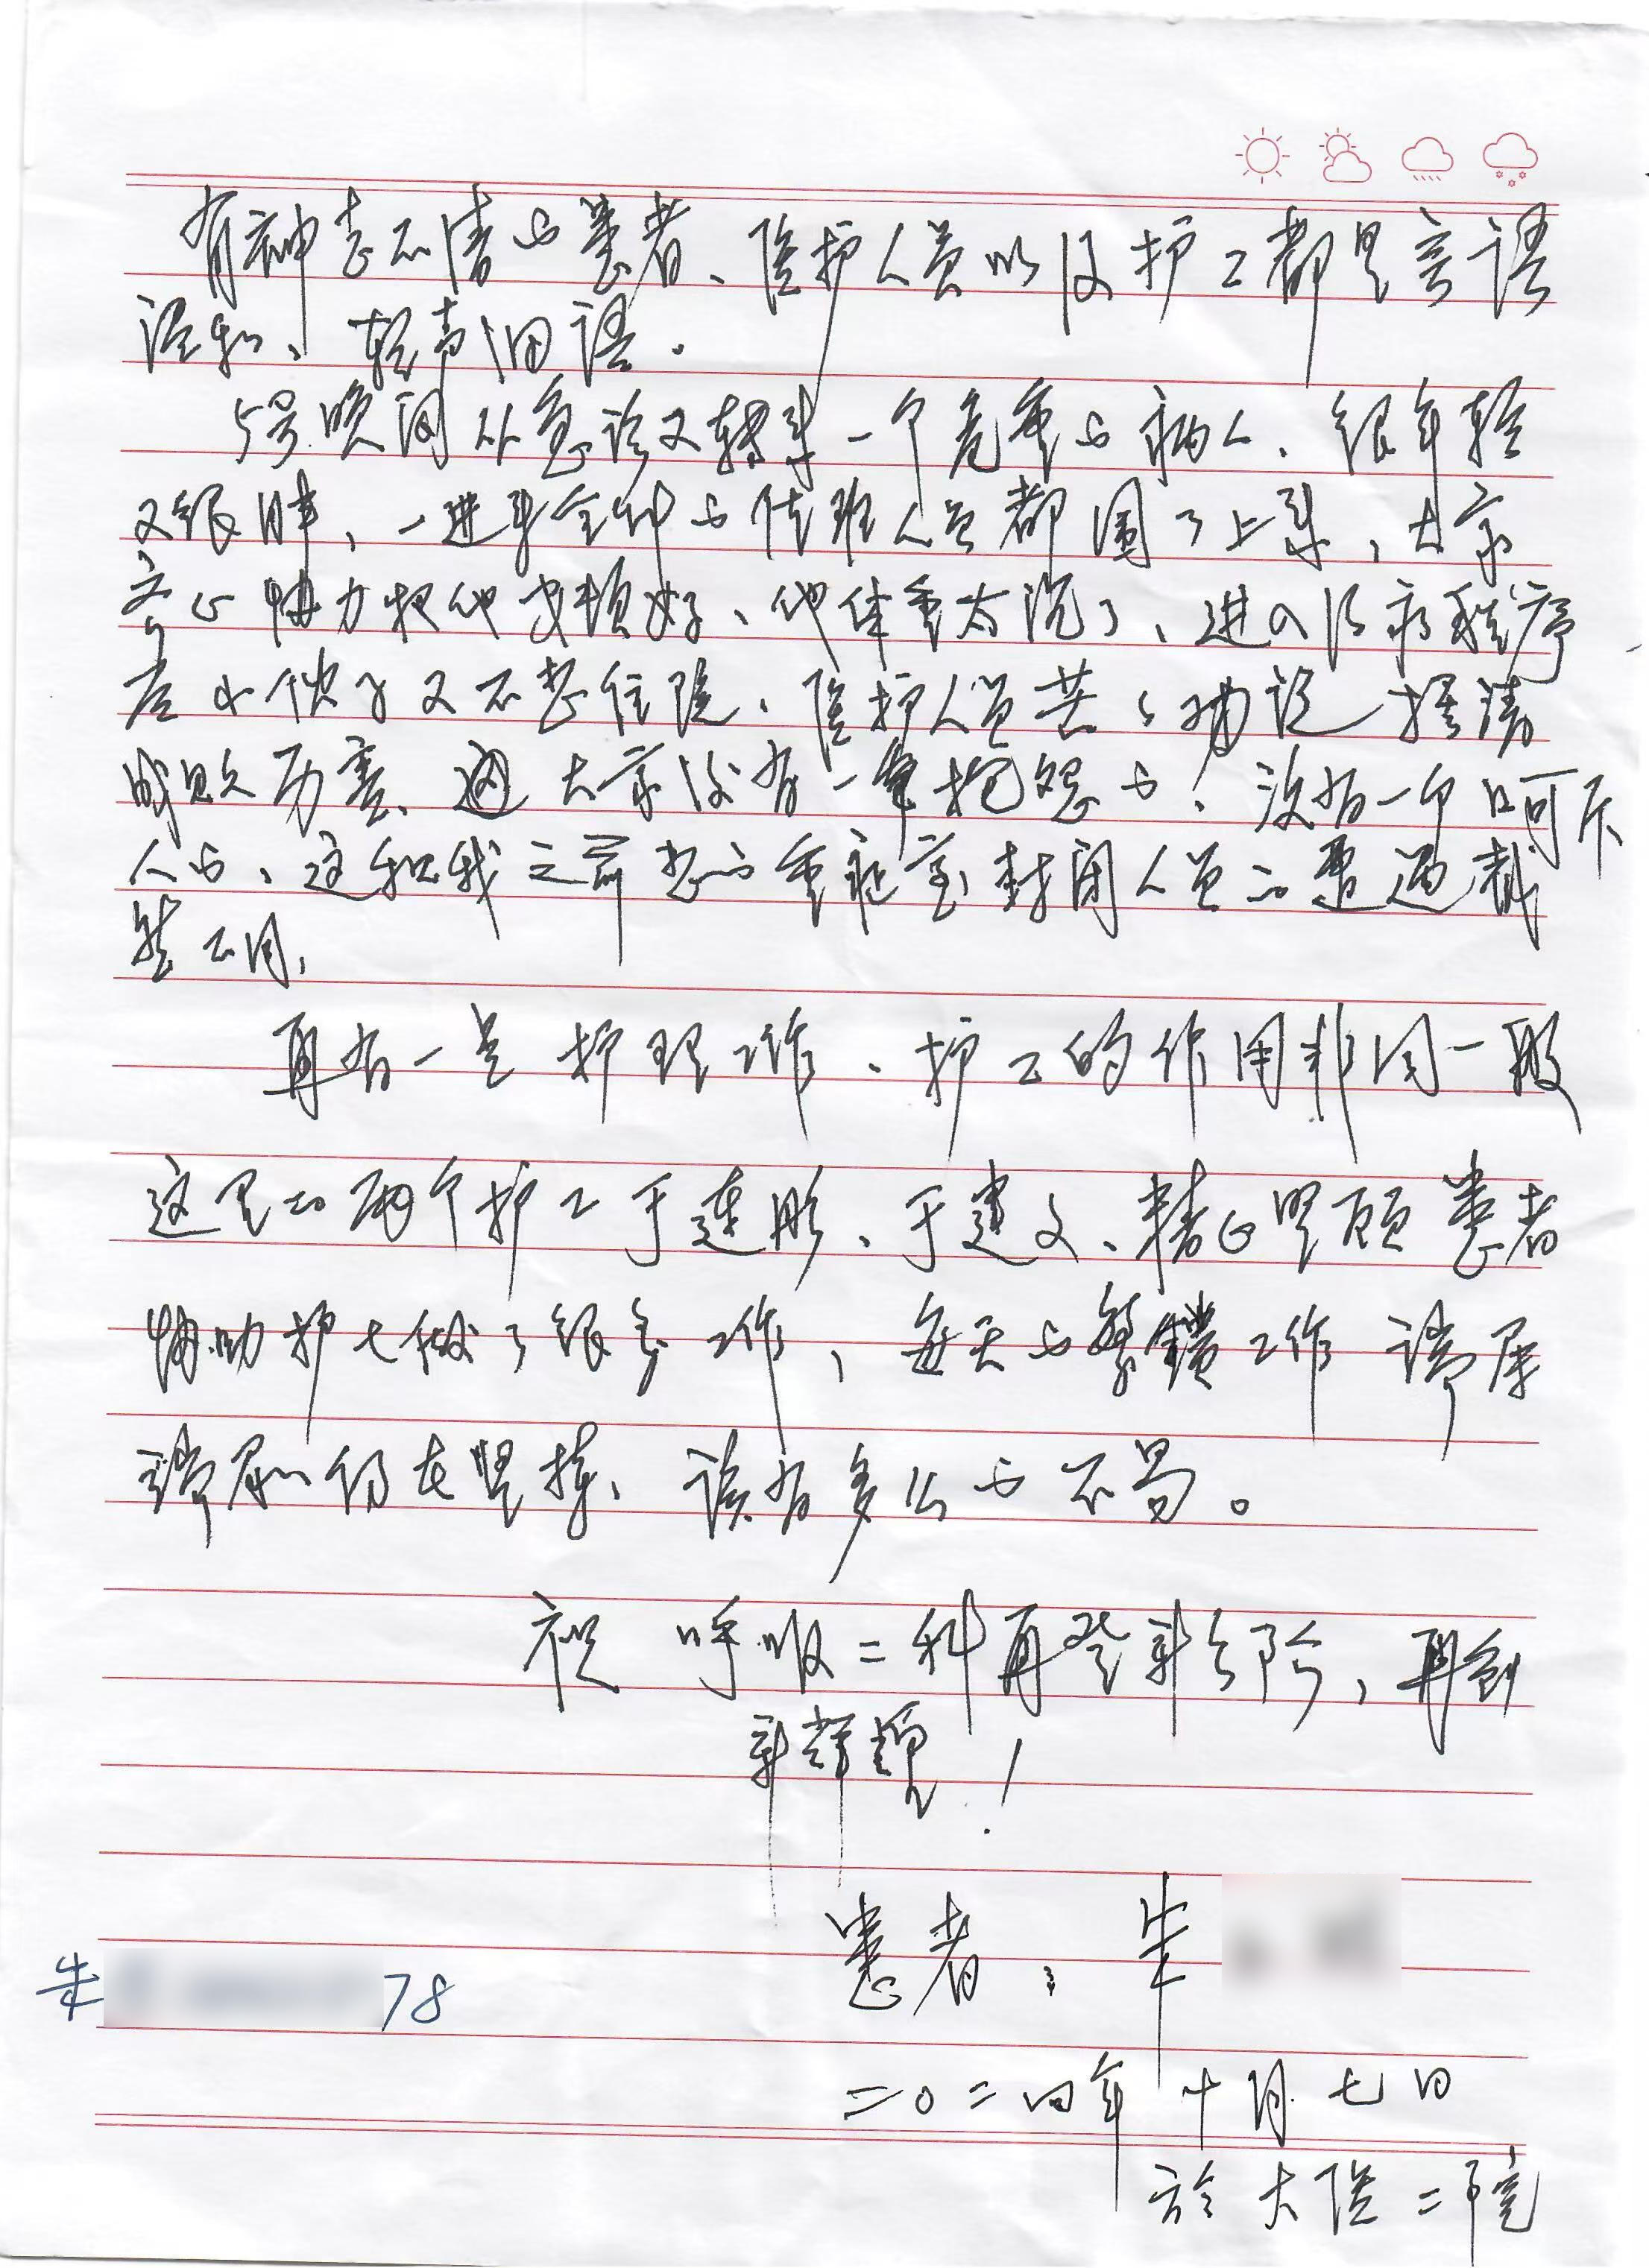 有神志不清的患者、医护人员以及护工都是言语
温和、轻声细语.
5号晚间从急诊又转来一个危重的病人. 很年轻
又很胖, 一进来全部的值班人员都围了上来, 大家
齐心协力把他安顿好、他体重太沉了、进入治疗程序
后小伙子又不想住院、医护人员苦心劝说 摆清
利害、大家没有一笔抱怨的, 没有一个呵斥
人的、这和我之前想的重症室封闭人员的遭遇截
然不同,
再有一是护理工作、护工的作用非同一般
这里的两个护工于连彤、于建文、精心照顾患者
辅助护士做了很多工作, 每天的繁锁工作 端屎
端尿 仍在坚持、该有多么的不易。
祝 呼吸二科再登新台阶, 再创
新辉煌!
患者: 朱
朱 78
二〇二四年十月七日
於大医二院